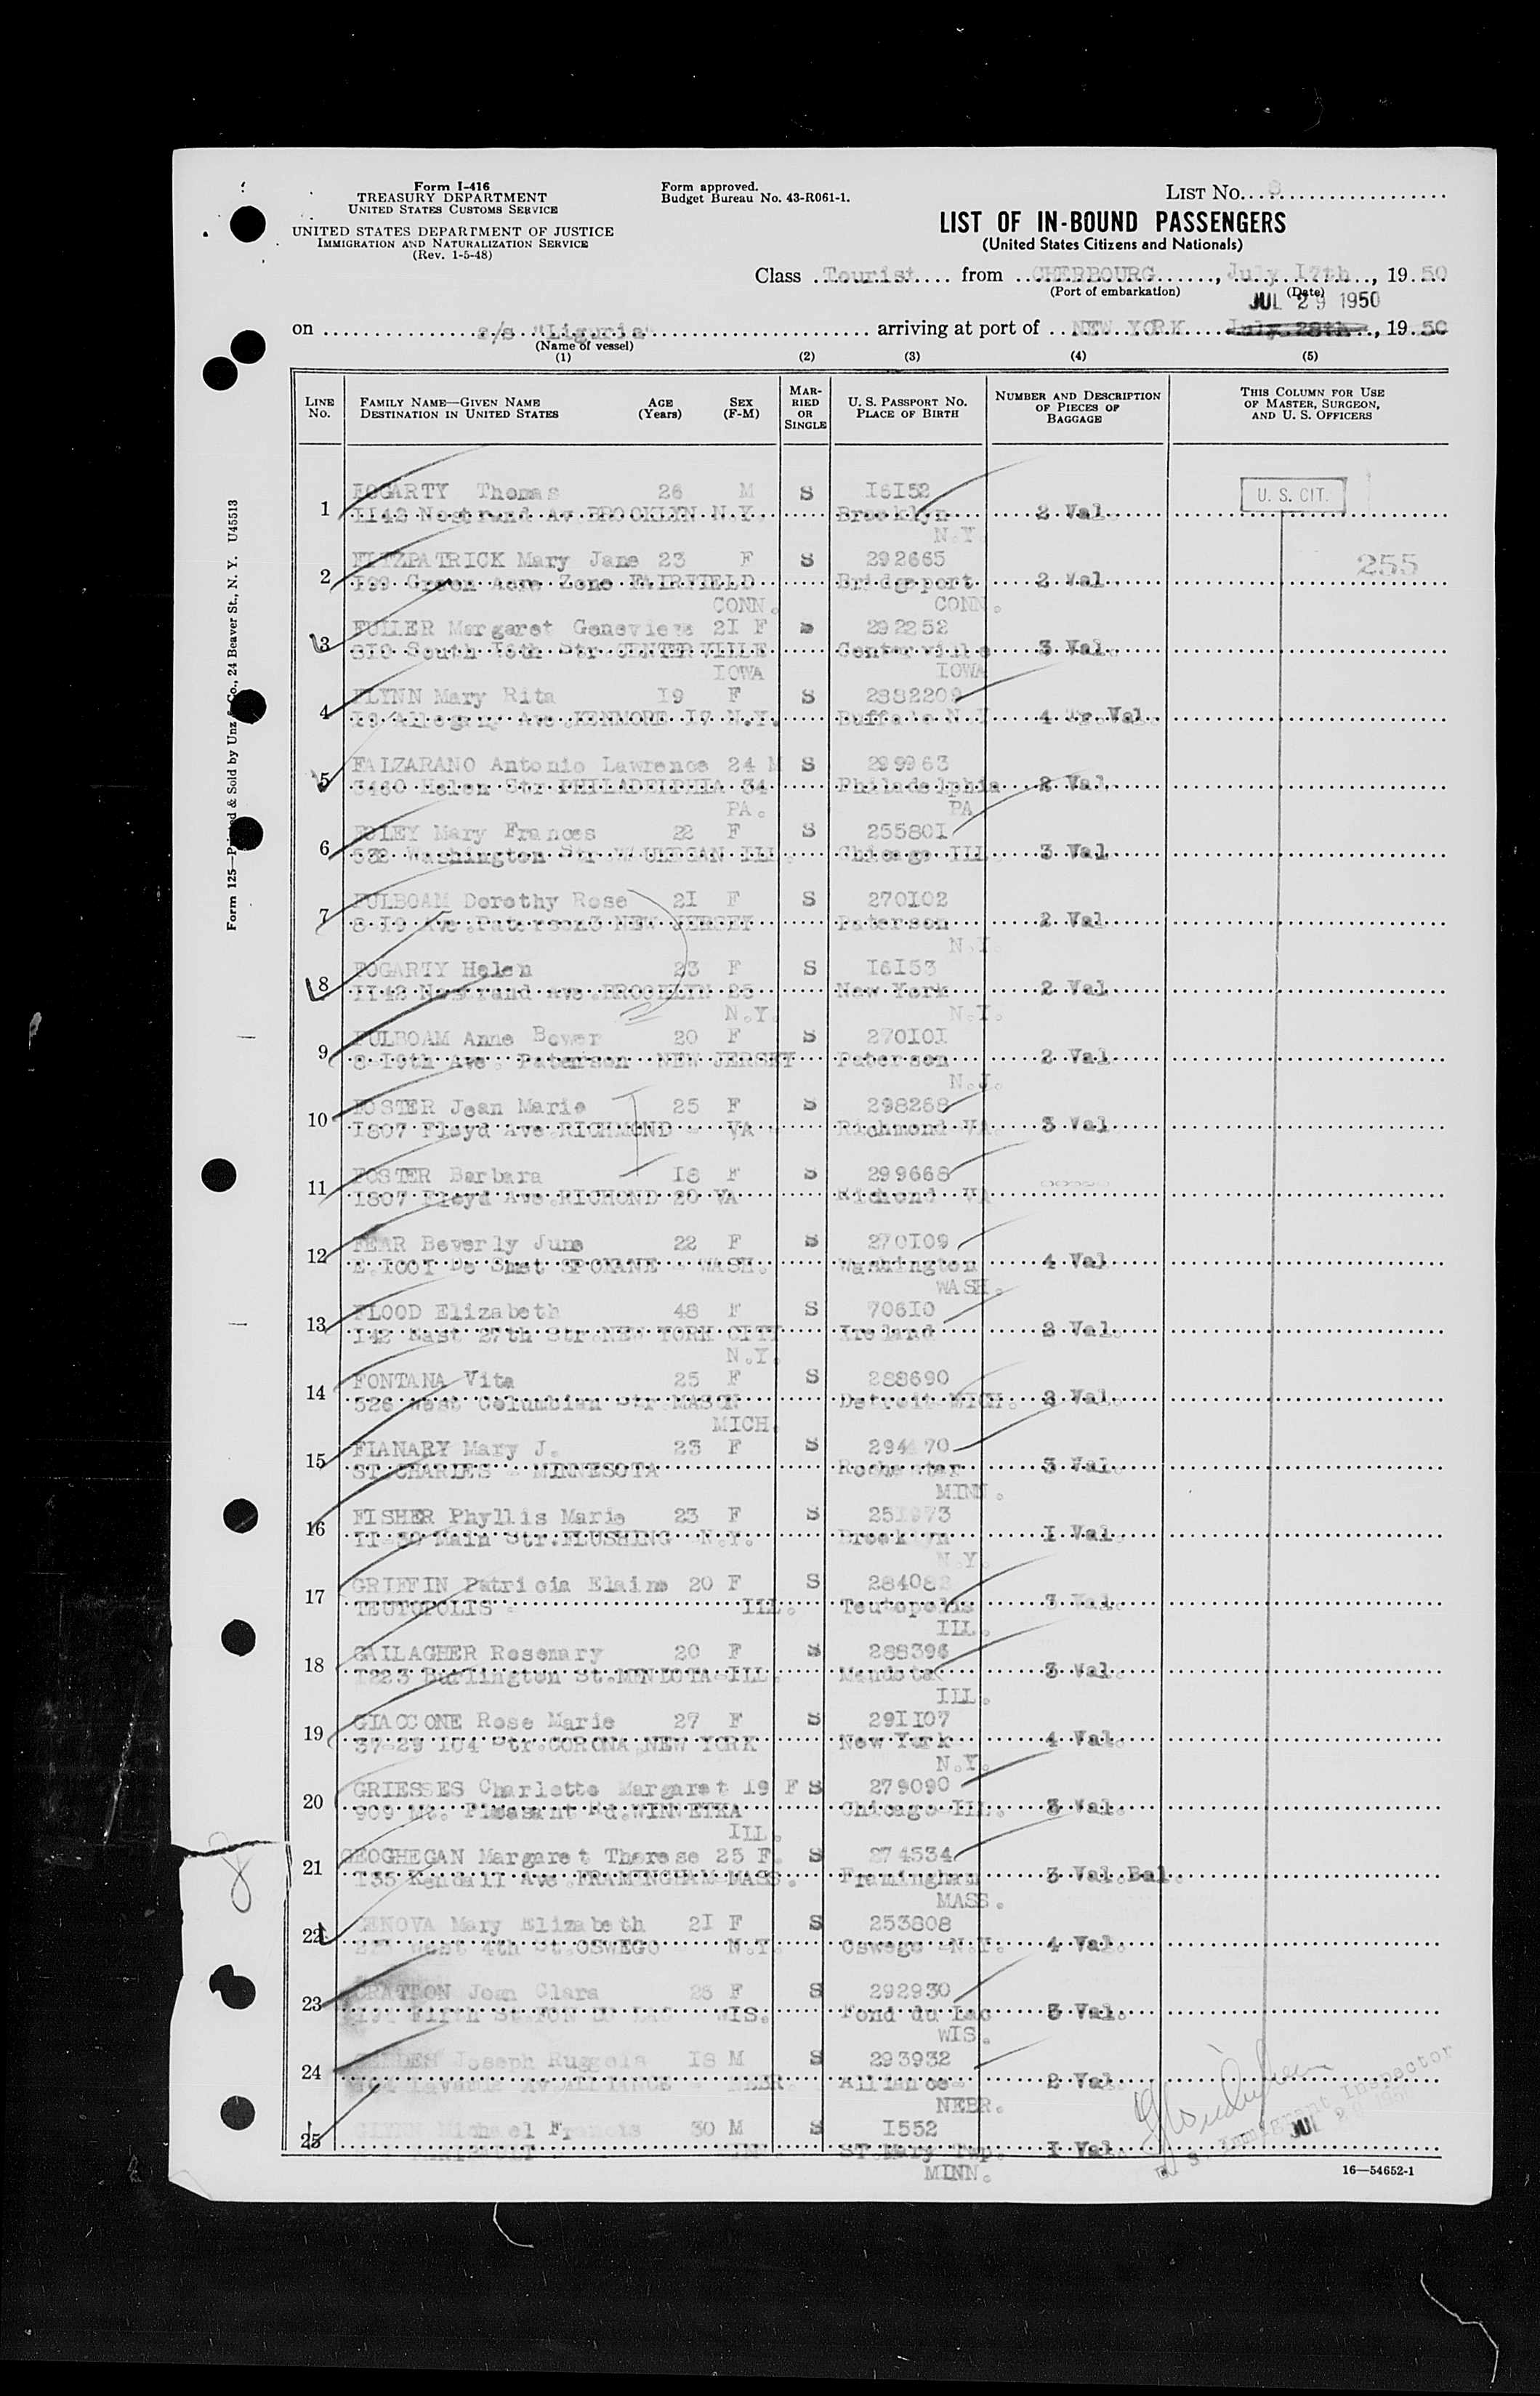 Form I-416
TREASURY DEPARTMENT
UNITED STATES CUSTOMS SERVICE
UNITED STATES DEPARTMENT OF JUSTICE
IMMIGRATION AND NATURALIZATION SERVICE
(Rev. 1-5-48)
Form approved.
Budget Bureau No. 43-R061-1.
LIST NO.
LIST OF IN-BOUND PASSENGERS
(United States Citizens and Nationals)
Class Tourist from CHERBOURG, July 17th, 1950
(Port of embarkation) (Date)
JUL 29 1950
on s/s "Liguria" arriving at port of NEW YORK July 28th, 1950
(Name of vessel)
(1) (2) (3) (4) (5)
LINE NO.
FAMILY NAME—GIVEN NAME DESTINATION IN UNITED STATES
AGE (Years)
SEX (F-M)
MARRIED OR SINGLE
U. S. PASSPORT NO. PLACE OF BIRTH
NUMBER AND DESCRIPTION OF PIECES OF BAGGAGE
THIS COLUMN FOR USE OF MASTER, SURGEON, AND U. S. OFFICERS
1 FOGARTY Thomas 26 M S I6I52 U. S. CIT.
II42 Nostrand Av.BROOKLYN N.Y. Brooklyn 2 Val.
N.Y.
2 FITZPATRICK Mary Jane 23 F S 292665 255
I99 Green Acre Zone FAIRFIELD Bridgeport 2 Val
CONN. CONN.
3 FULLER Margaret Genevieve 2I F S 292252
South I6th Str CENTERVILLE Centerville 3 Val.
IOWA IOWA
4 FLYNN Mary Rita I9 F S 2882209
Ave.KENMORE I7 N.Y. Buffalo N.Y 4 Tr.Val.
5 FALZARANO Antonio Lawrence 24 M S 299963
3460 Helen Str PHILADELPHIA 34 Philadelphia 2 Val
PA. PA
6 FOLEY Mary Frances 22 F S 25580I
Washington Str WAUKEGAN ILL. Chicago ILL 3 Val
7 FULBOAM Dorothy Rose 2I F S 270I02
8-I9 Ave.Paterson3 NEW JERSEY Paterson 2 Val
N.Y.
8 FOGARTY Helen 23 F S I6I53
II42 Nostrand Ave.BROOKLYN 25 New York 2 Val
N.Y. N.Y.
9 FULBOAM Anne Bower 20 F S 270I0I
8-I9th Ave. Paterson NEW JERSEY Paterson 2 Val
N.J.
10 FOSTER Jean Marie 25 F S 298268
I807 Floyd Ave.RICHMOND - VA Richmond VA 3 Val
11 FOSTER Barbara I8 F S 299668
I807 Floyd Ave.RICHOND 20 VA Richond VA
12 FEAR Beverly June 22 F S 270I09
E.I00I De Smet SPOKANE - WASH. Washington 4 Val
WASH.
13 FLOOD Elizabeth 48 F S 706I0
I42 East 27th Str.NEW YORK CITY Ireland 2 Val.
N.Y.
14 FONTANA Vita 25 F S 288690
526 West Columbian Str.MASON Detroit MICH. 2 Val.
MICH.
15 FLANARY Mary J. 23 F S 294 70
ST CHARLES - MINNESOTA Rochester 3 Val.
MINN.
16 FISHER Phyllis Marie 23 F S
II-30 Main Str.FLUSHING N.Y. Brooklyn I Val.
N.Y.
17 GRIFFIN Patricia Elaine 20 F S 284082
TEUTOPOLIS - ILL. Teutopolis 3 Val.
ILL.
18 GALLAGHER Rosemary 20 F S 288396
I223 Burlington St.MENDOTA-ILL. Mendota 3 Val.
ILL.
19 GIACCONE Rose Marie 27 F S 29II07
37-29 I04 Str.CORONA,NEW YORK New York 4 Val.
N.Y.
20 GRIESSES Charlotte Margaret I9 F S 279090
909 Mt. Pleasant Rd.WINNETKA Chicago ILL. 3 Val.
ILL.
21 GEOGHEGAN Margaret Therese 25 F. S 274534
I35 Kendall Ave.FRAMINGHAM-MASS. Framingham 3 Val.Bal.
MASS.
22 GENOVA Mary Elizabeth 2I F S 253808
West 4th St.OSWEGO - N.Y. Oswego -N.Y. 4 Val.
23 GRATTON Joan Clara 25 F S 292930
Fifth St.FON DU LAC - WIS. Fond du Lac 3 Val.
WIS.
24 Joseph Ruggels I8 M S 293932
Av.ALLIANCE - NEBR. Alliance- 2 Val.
NEBR.
25 GLYNN Michael Francis 30 M S I552
ST.Mary Twp. I Val.
MINN.
Immigrant Inspector
JUL
16—54652-1
Form 125—Printed & Sold by Unz & Co., 24 Beaver St., N. Y. U45513
8